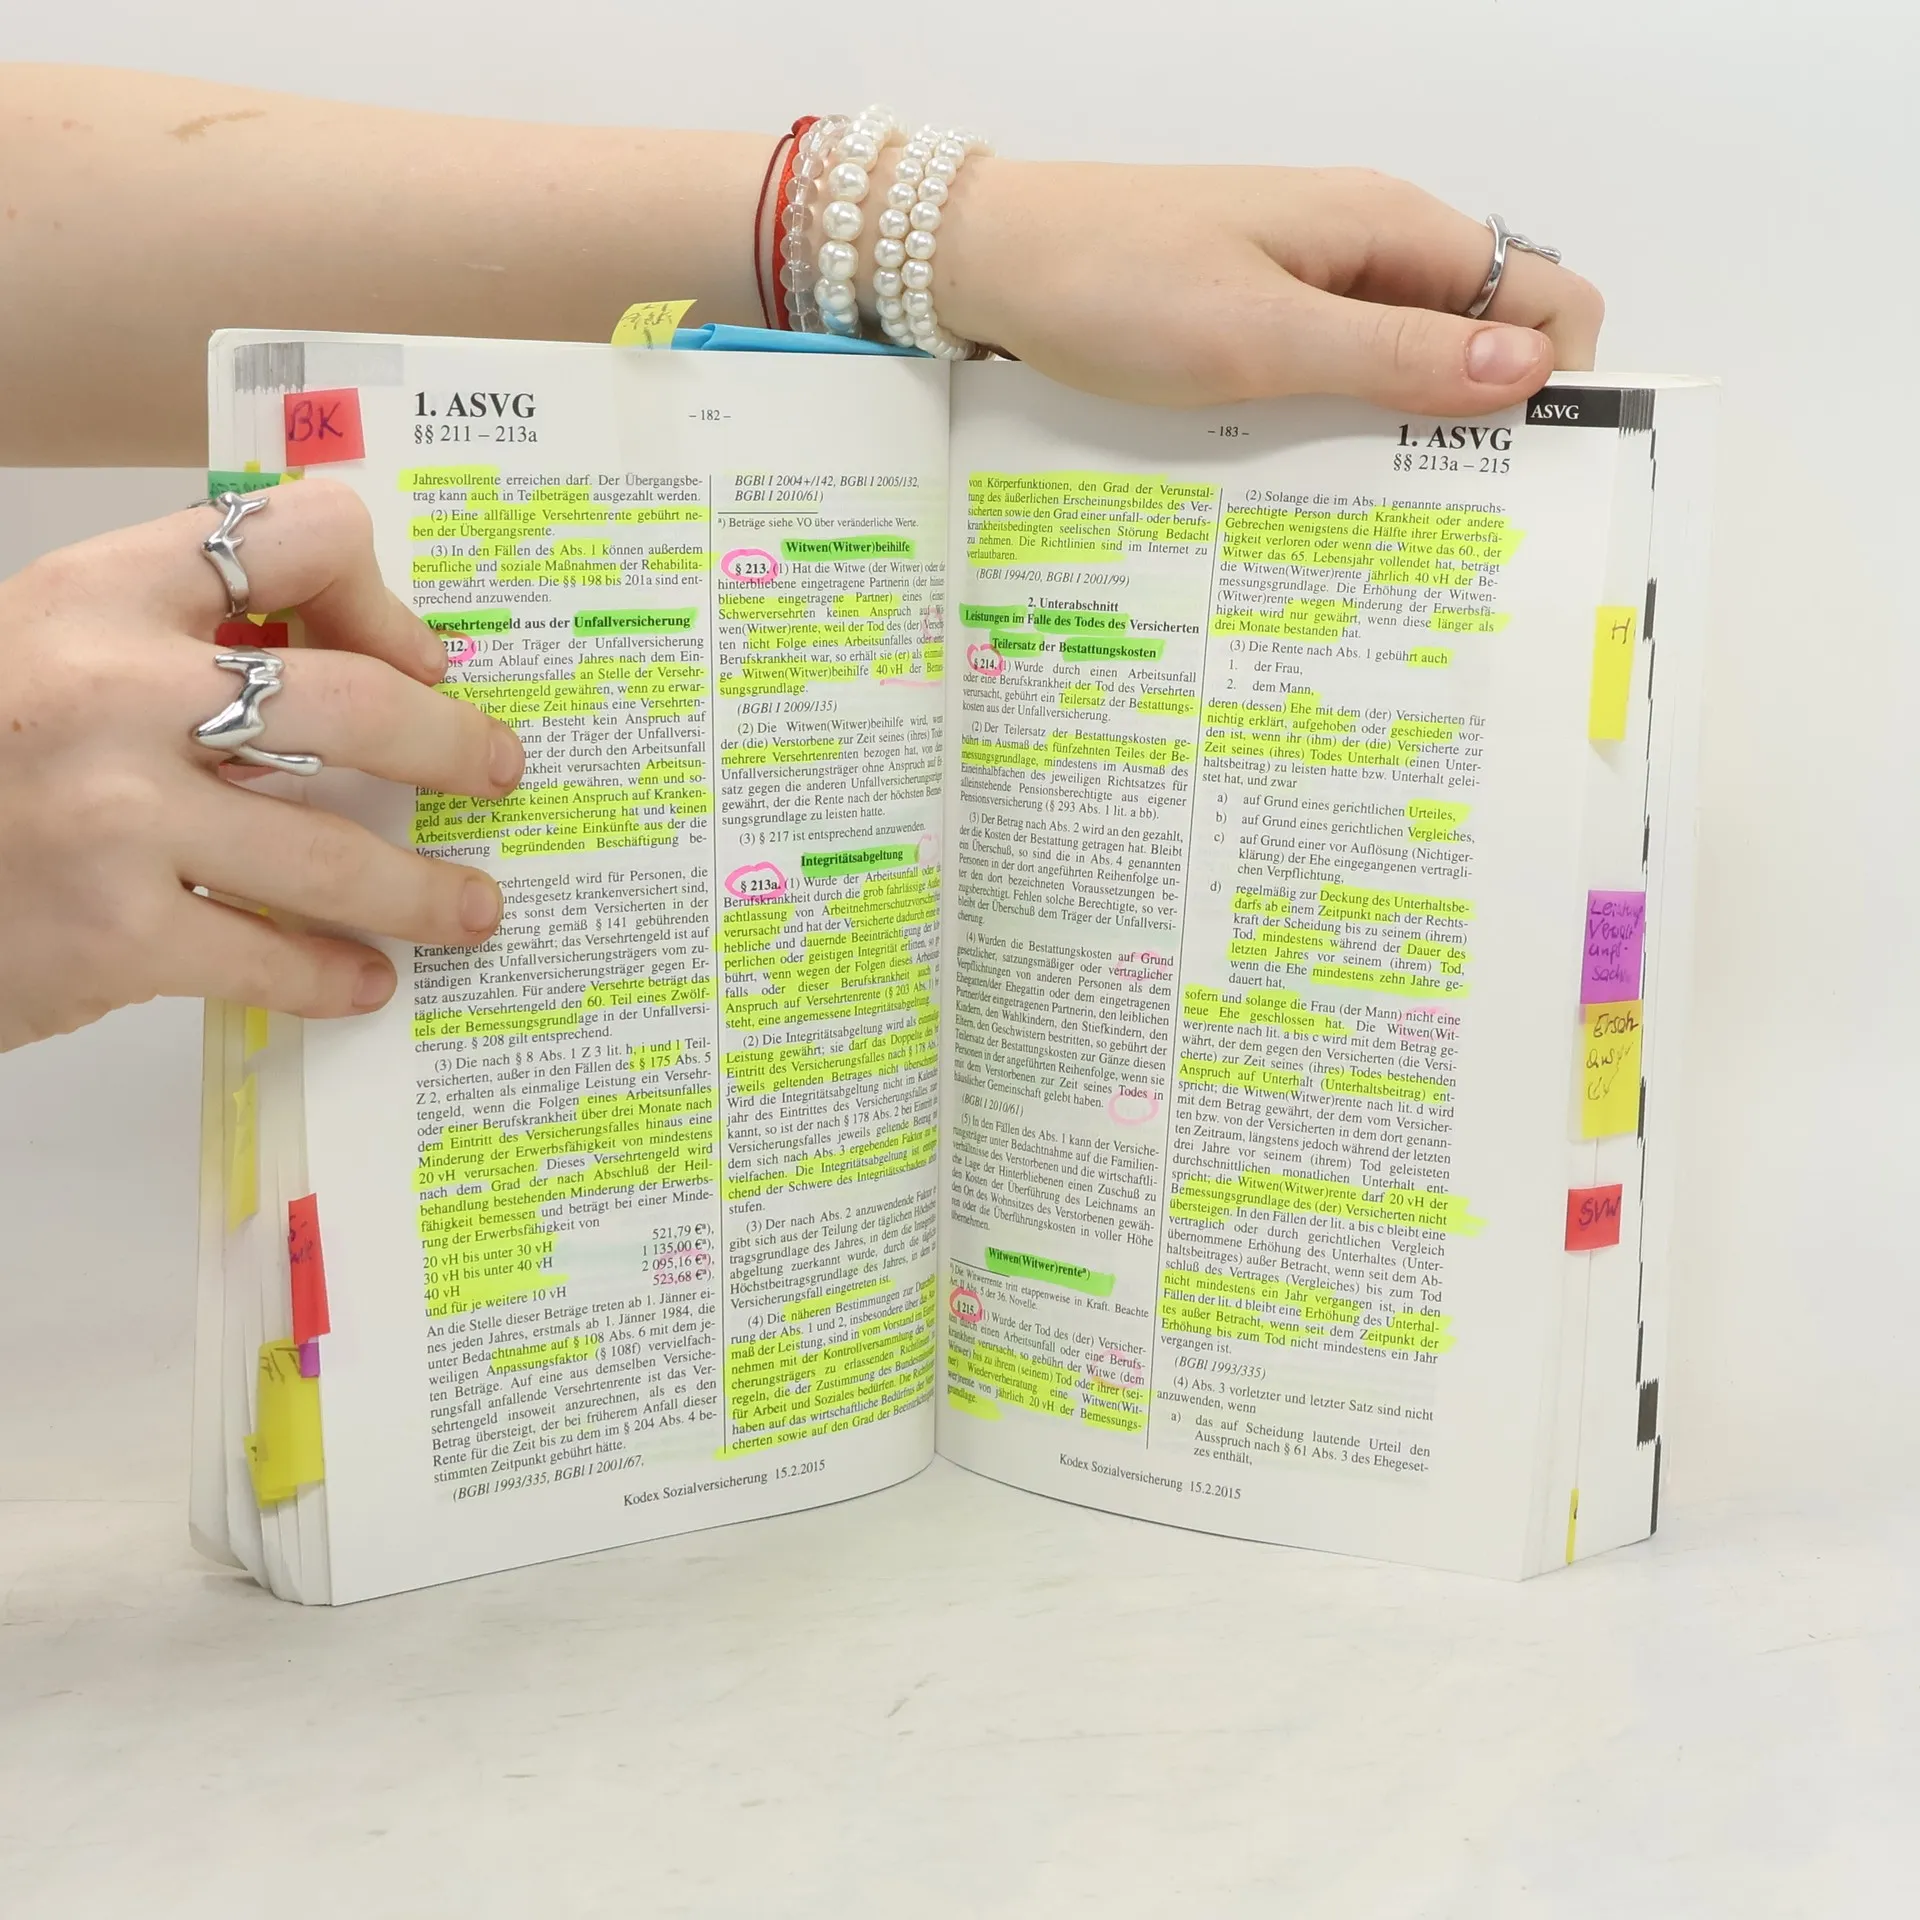 BK
1. ASVG
§§ 211 – 213a
– 182 –
Jahresvollrente erreichen darf. Der Übergangsbe-
trag kann auch in Teilbeträgen ausgezahlt werden.
(2) Eine allfällige Versehrtenrente gebührt ne-
ben der Übergangsrente.
(3) In den Fällen des Abs. 1 können außerdem
berufliche und soziale Maßnahmen der Rehabilita-
tion gewährt werden. Die §§ 198 bis 201a sind ent-
sprechend anzuwenden.
Versehrtengeld aus der Unfallversicherung
212. (1) Der Träger der Unfallversicherung
bis zum Ablauf eines Jahres nach dem Ein-
des Versicherungsfalles an Stelle der Versehr-
Versehrtengeld gewähren, wenn zu erwar-
über diese Zeit hinaus eine Versehrten-
Besteht kein Anspruch auf
der Träger der Unfallversi-
der durch den Arbeitsunfall
verursachten Arbeitsun-
gewähren, wenn und so-
lange der Versehrte keinen Anspruch auf Kranken-
geld aus der Krankenversicherung hat und keinen
Arbeitsverdienst oder keine Einkünfte aus der die
Versicherung begründenden Beschäftigung be-
wird für Personen, die
krankenversichert sind,
sonst dem Versicherten in der
gemäß § 141 gebührenden
Krankengeldes gewährt; das Versehrtengeld ist auf
Ersuchen des Unfallversicherungsträgers vom zu-
ständigen Krankenversicherungsträger gegen Er-
satz auszuzahlen. Für andere Versehrte beträgt das
tägliche Versehrtengeld den 60. Teil eines Zwölf-
tels der Bemessungsgrundlage in der Unfallversi-
cherung. § 208 gilt entsprechend.
(3) Die nach § 8 Abs. 1 Z 3 lit. h, i und l Teil-
versicherten, außer in den Fällen des § 175 Abs. 5
Z 2, erhalten als einmalige Leistung ein Versehr-
tengeld, wenn die Folgen eines Arbeitsunfalles
oder einer Berufskrankheit über drei Monate nach
dem Eintritt des Versicherungsfalles hinaus eine
Minderung der Erwerbsfähigkeit von mindestens
20 vH verursachen. Dieses Versehrtengeld wird
nach dem Grad der nach Abschluß der Heil-
behandlung bestehenden Minderung der Erwerbs-
fähigkeit bemessen und beträgt bei einer Minde-
rung der Erwerbsfähigkeit von
20 vH bis unter 30 vH 521,79 €ª),
30 vH bis unter 40 vH 1 135,00 €ª),
40 vH 2 095,16 €ª),
und für je weitere 10 vH 523,68 €ª).
An die Stelle dieser Beträge treten ab 1. Jänner ei-
nes jeden Jahres, erstmals ab 1. Jänner 1984, die
unter Bedachtnahme auf § 108 Abs. 6 mit dem je-
weiligen Anpassungsfaktor (§ 108f) vervielfach-
ten Beträge. Auf eine aus demselben Versiche-
rungsfall anfallende Versehrtenrente ist das Ver-
sehrtengeld insoweit anzurechnen, als es den
Betrag übersteigt, der bei früherem Anfall dieser
Rente für die Zeit bis zu dem im § 204 Abs. 4 be-
stimmten Zeitpunkt gebührt hätte.
(BGBl 1993/335, BGBl I 2001/67,
BGBl I 2004+/142, BGBl I 2005/132,
BGBl I 2010/61)
ª) Beträge siehe VO über veränderliche Werte.
Witwen(Witwer)beihilfe
§ 213. (1) Hat die Witwe (der Witwer) oder
hinterbliebene eingetragene Partnerin (der
bliebene eingetragene Partner) eines
Schwerversehrten keinen Anspruch auf
wen(Witwer)rente, weil der Tod des (der)
ten nicht Folge eines Arbeitsunfalles oder
Berufskrankheit war, so erhält sie (er) als
ge Witwen(Witwer)beihilfe 40 vH der
sungsgrundlage.
(BGBl I 2009/135)
(2) Die Witwen(Witwer)beihilfe wird,
der (die) Verstorbene zur Zeit seines (ihres)
mehrere Versehrtenrenten bezogen hat, von
Unfallversicherungsträger ohne Anspruch auf
satz gegen die anderen Unfallversicherungsträger
gewährt, der die Rente nach der höchsten
sungsgrundlage zu leisten hatte.
(3) § 217 ist entsprechend anzuwenden.
Integritätsabgeltung
§ 213a. (1) Wurde der Arbeitsunfall oder
Berufskrankheit durch die grob fahrlässige
achtlassung von Arbeitnehmerschutzvorschriften
verursacht und hat der Versicherte dadurch
hebliche und dauernde Beeinträchtigung der
perlichen oder geistigen Integrität erlitten,
bührt, wenn wegen der Folgen dieses
falls oder dieser Berufskrankheit auch
Anspruch auf Versehrtenrente (§ 203 Abs. 1)
steht, eine angemessene Integritätsabgeltung.
(2) Die Integritätsabgeltung wird als
Leistung gewährt; sie darf das Doppelte des
Eintritt des Versicherungsfalles nach § 178 Abs.
jeweils geltenden Betrages nicht
Wird die Integritätsabgeltung nicht im
jahr des Eintrittes des Versicherungsfalles
kannt, so ist der nach § 178 Abs. 2 bei
Versicherungsfalles jeweils geltende Betrag
dem sich nach Abs. 3 ergebenden Faktor zu
vielfachen. Die Integritätsabgeltung ist
chend der Schwere des Integritätsschadens
stufen.
(3) Der nach Abs. 2 anzuwendende Faktor
gibt sich aus der Teilung der täglichen
tragsgrundlage des Jahres, in dem die
abgeltung zuerkannt wurde, durch die tägliche
Höchstbeitragsgrundlage des Jahres, in dem
Versicherungsfall eingetreten ist.
(4) Die näheren Bestimmungen zur
rung der Abs. 1 und 2, insbesondere über das
maß der Leistung, sind in vom Vorstand im
nehmen mit der Kontrollversammlung des
cherungsträgers zu erlassenden Richtlinien
regeln, die der Zustimmung des
für Arbeit und Soziales bedürfen. Die
haben auf das wirtschaftliche Bedürfnis der
cherten sowie auf den Grad der
Kodex Sozialversicherung 15.2.2015
ASVG
– 183 –
1. ASVG
§§ 213a – 215
von Körperfunktionen, den Grad der Verunstal-
tung des äußerlichen Erscheinungsbildes des Ver-
sicherten sowie den Grad einer unfall- oder berufs-
krankheitsbedingten seelischen Störung Bedacht
zu nehmen. Die Richtlinien sind im Internet zu
verlautbaren.
(BGBl 1994/20, BGBl I 2001/99)
2. Unterabschnitt
Leistungen im Falle des Todes des Versicherten
Teilersatz der Bestattungskosten
§ 214. (1) Wurde durch einen Arbeitsunfall
oder eine Berufskrankheit der Tod des Versehrten
verursacht, gebührt ein Teilersatz der Bestattungs-
kosten aus der Unfallversicherung.
(2) Der Teilersatz der Bestattungskosten ge-
bührt im Ausmaß des fünfzehnten Teiles der Be-
messungsgrundlage, mindestens im Ausmaß des
Eineinhalbfachen des jeweiligen Richtsatzes für
alleinstehende Pensionsberechtigte aus eigener
Pensionsversicherung (§ 293 Abs. 1 lit. a bb).
(3) Der Betrag nach Abs. 2 wird an den gezahlt,
der die Kosten der Bestattung getragen hat. Bleibt
ein Überschuß, so sind die in Abs. 4 genannten
Personen in der dort angeführten Reihenfolge un-
ter den dort bezeichneten Voraussetzungen be-
zugsberechtigt. Fehlen solche Berechtigte, so ver-
bleibt der Überschuß dem Träger der Unfallversi-
cherung.
(4) Wurden die Bestattungskosten auf Grund
gesetzlicher, satzungsmäßiger oder vertraglicher
Verpflichtungen von anderen Personen als dem
Ehegatten/der Ehegattin oder dem eingetragenen
Partner/der eingetragenen Partnerin, den leiblichen
Kindern, den Wahlkindern, den Stiefkindern, den
Eltern, den Geschwistern bestritten, so gebührt der
Teilersatz der Bestattungskosten zur Gänze diesen
Personen in der angeführten Reihenfolge, wenn sie
mit dem Verstorbenen zur Zeit seines Todes in
häuslicher Gemeinschaft gelebt haben.
(BGBl I 2010/61)
(5) In den Fällen des Abs. 1 kann der Versiche-
rungsträger unter Bedachtnahme auf die Familien-
verhältnisse des Verstorbenen und die wirtschaftli-
che Lage der Hinterbliebenen einen Zuschuß zu
den Kosten der Überführung des Leichnams an
den Ort des Wohnsitzes des Verstorbenen gewäh-
ren oder die Überführungskosten in voller Höhe
übernehmen.
Witwen(Witwer)renteª)
ª) Die Witwerrente tritt etappenweise in Kraft. Beachte
Art. II Abs. 5 der 36. Novelle.
§ 215. (1) Wurde der Tod des (der) Versicher-
ten durch einen Arbeitsunfall oder eine Berufs-
krankheit verursacht, so gebührt der Witwe (dem
Witwer) bis zu ihrem (seinem) Tod oder ihrer (sei-
ner) Wiederverheiratung eine Witwen(Wit-
wer)rente von jährlich 20 vH der Bemessungs-
grundlage.
(2) Solange die im Abs. 1 genannte anspruchs-
berechtigte Person durch Krankheit oder andere
Gebrechen wenigstens die Hälfte ihrer Erwerbsfä-
higkeit verloren oder wenn die Witwe das 60., der
Witwer das 65. Lebensjahr vollendet hat, beträgt
die Witwen(Witwer)rente jährlich 40 vH der Be-
messungsgrundlage. Die Erhöhung der Witwen-
(Witwer)rente wegen Minderung der Erwerbsfä-
higkeit wird nur gewährt, wenn diese länger als
drei Monate bestanden hat.
(3) Die Rente nach Abs. 1 gebührt auch
1. der Frau,
2. dem Mann,
deren (dessen) Ehe mit dem (der) Versicherten für
nichtig erklärt, aufgehoben oder geschieden wor-
den ist, wenn ihr (ihm) der (die) Versicherte zur
Zeit seines (ihres) Todes Unterhalt (einen Unter-
haltsbeitrag) zu leisten hatte bzw. Unterhalt gelei-
stet hat, und zwar
a) auf Grund eines gerichtlichen Urteiles,
b) auf Grund eines gerichtlichen Vergleiches,
c) auf Grund einer vor Auflösung (Nichtiger-
klärung) der Ehe eingegangenen vertragli-
chen Verpflichtung,
d) regelmäßig zur Deckung des Unterhaltsbe-
darfs ab einem Zeitpunkt nach der Rechts-
kraft der Scheidung bis zu seinem (ihrem)
Tod, mindestens während der Dauer des
letzten Jahres vor seinem (ihrem) Tod,
wenn die Ehe mindestens zehn Jahre ge-
dauert hat,
sofern und solange die Frau (der Mann) nicht eine
neue Ehe geschlossen hat. Die Witwen(Wit-
wer)rente nach lit. a bis c wird mit dem Betrag ge-
währt, der dem gegen den Versicherten (die Versi-
cherte) zur Zeit seines (ihres) Todes bestehenden
Anspruch auf Unterhalt (Unterhaltsbeitrag) ent-
spricht; die Witwen(Witwer)rente nach lit. d wird
mit dem Betrag gewährt, der dem vom Versicher-
ten bzw. von der Versicherten in dem dort genann-
ten Zeitraum, längstens jedoch während der letzten
drei Jahre vor seinem (ihrem) Tod geleisteten
durchschnittlichen monatlichen Unterhalt ent-
spricht; die Witwen(Witwer)rente darf 20 vH der
Bemessungsgrundlage des (der) Versicherten nicht
übersteigen. In den Fällen der lit. a bis c bleibt eine
vertraglich oder durch gerichtlichen Vergleich
übernommene Erhöhung des Unterhaltes (Unter-
haltsbeitrages) außer Betracht, wenn seit dem Ab-
schluß des Vertrages (Vergleiches) bis zum Tod
nicht mindestens ein Jahr vergangen ist, in den
Fällen der lit. d bleibt eine Erhöhung des Unterhal-
tes außer Betracht, wenn seit dem Zeitpunkt der
Erhöhung bis zum Tod nicht mindestens ein Jahr
vergangen ist.
(BGBl 1993/335)
(4) Abs. 3 vorletzter und letzter Satz sind nicht
anzuwenden, wenn
a) das auf Scheidung lautende Urteil den
Ausspruch nach § 61 Abs. 3 des Ehegeset-
zes enthält,
Kodex Sozialversicherung 15.2.2015
H
SVW